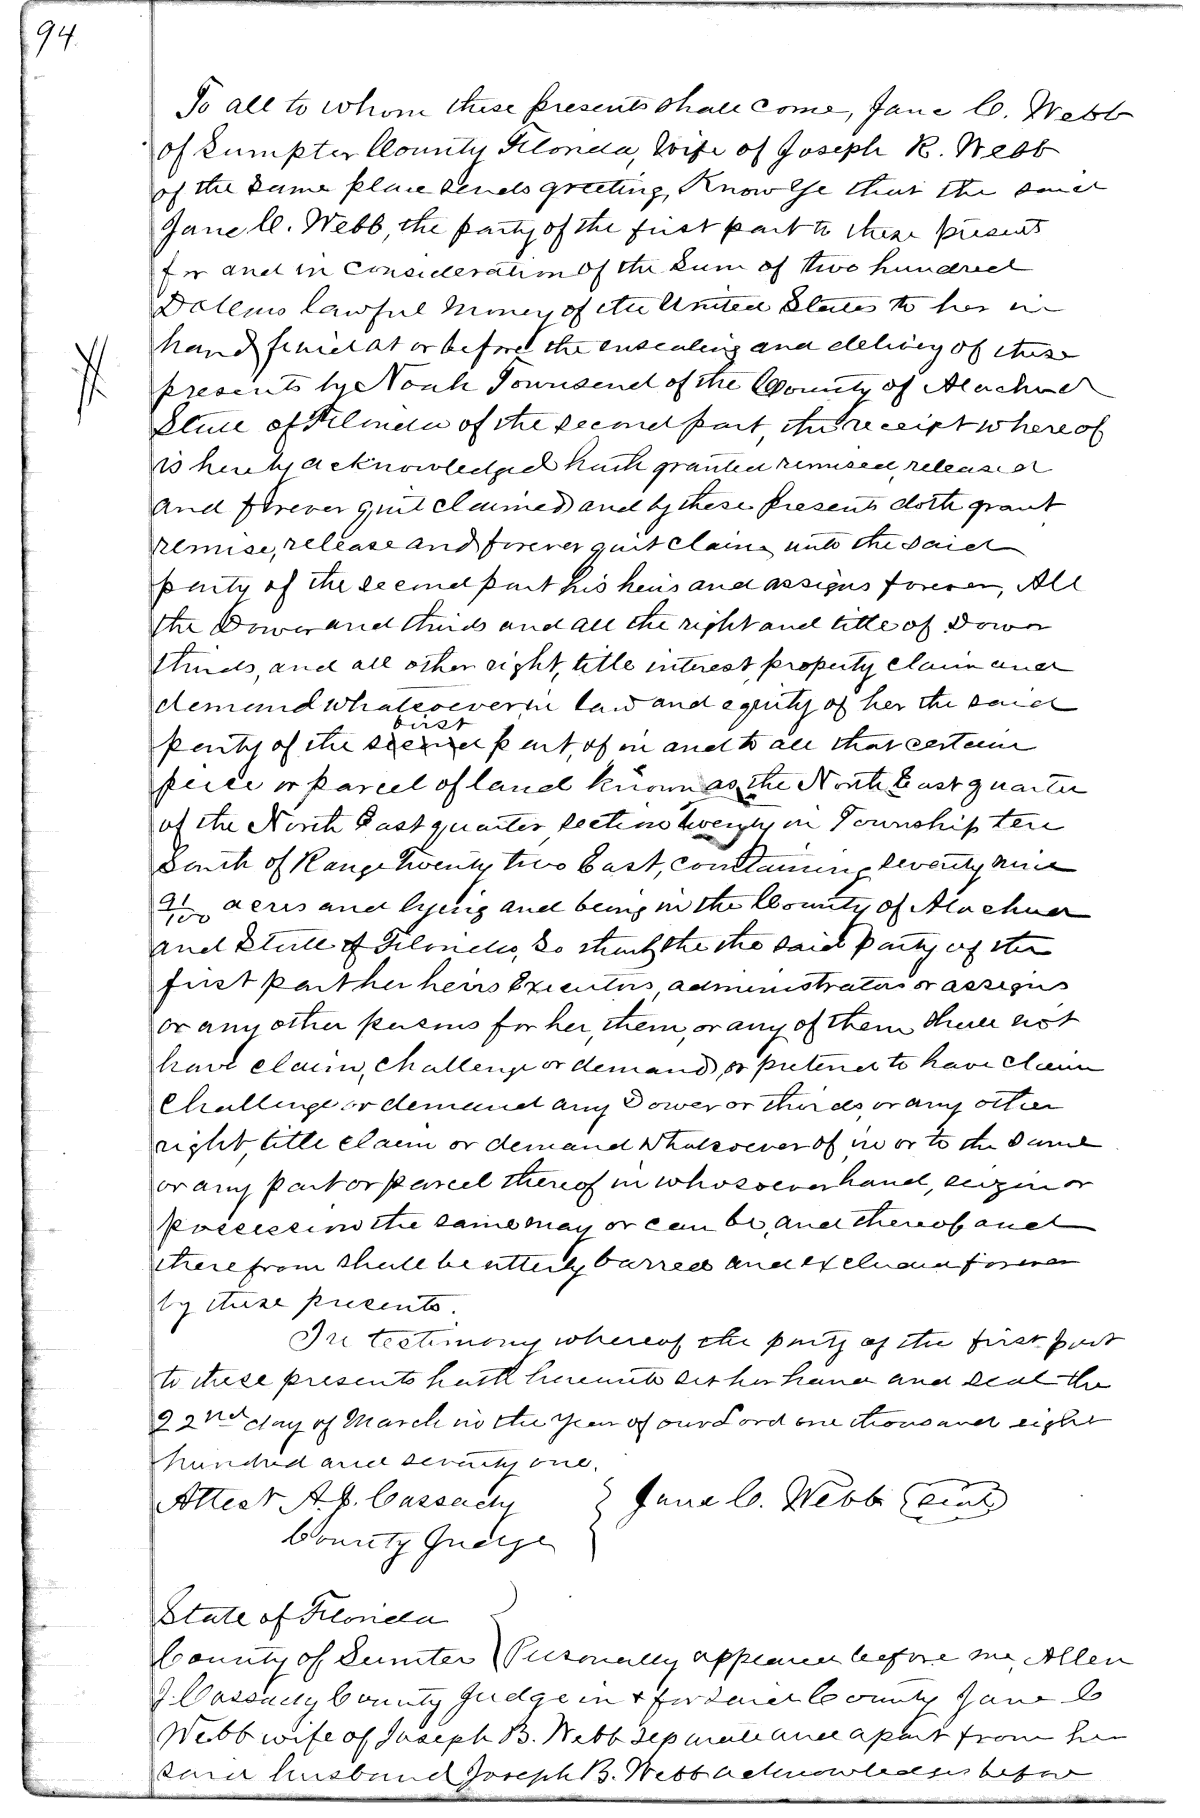 94
To all to whom these presents shall come, Jane C. Webb
of Sumpter County Florida, Wife of Joseph R. Webb
of the same place sends greeting, Know Ye that the said
Jane C. Webb, the party of the first part to these present
for and in consideration of the Sum of two hundred
Dollars lawful Money of the United States to her in
hand paid at or before the ensealing and delivey of these
presents by Noah Townsend of the County of Alachua
State of Florida of the second part, the receipt whereof
is hereby acknowledged hath granted remised, released
and forever quit claimed and by these presents doth grant
remise, release and forever quit claim unto the said
party of the second part his heirs and assigns forever, All
the Dower and thirds and all the right and title of Dower
thirds, and all other right, title interest, property claim and
demand whatsoever, in law and equity of her the said
first
party of the second part, of in and to all that certain
peice or parcel of land known as the North East quarter
of the North East quarter, section twenty in Township ten
South of Range Twenty two East, containing seventy nine
91/100 acres and lying and being in the County of Alachua
and State of Florida, So that the the said party of the
first part her heirs Executors, administrators or assigns
or any other persons for her, them, or any of them shall not
have claim, challenge or demand, or pretend to have claim
Challenge or demand any Dower or thirds, or any other
right, title claim or demand whatsoever of, in or to the same
or any part or parcel thereof in whosoever hand, seizin or
possession the same may or can be, and thereof and
therefrom shall be utterly barred and excluded forever
by these presents.
In testimony whereof the party of the first part
to these presents hath hereunto set her hand and seal the
22nd day of March in the Year of our Lord one thousand eight
hundred and seventy one.
Attest A. J. Cassady } Jane C. Webb (seal)
County Judge
State of Florida
County of Sumter } Personally appeared before me, Allen
J. Cassady County Judge in & for said County Jane C
Webb wife of Joseph B. Webb separate and apart from her
said husband Joseph B. Webb acknowledges before